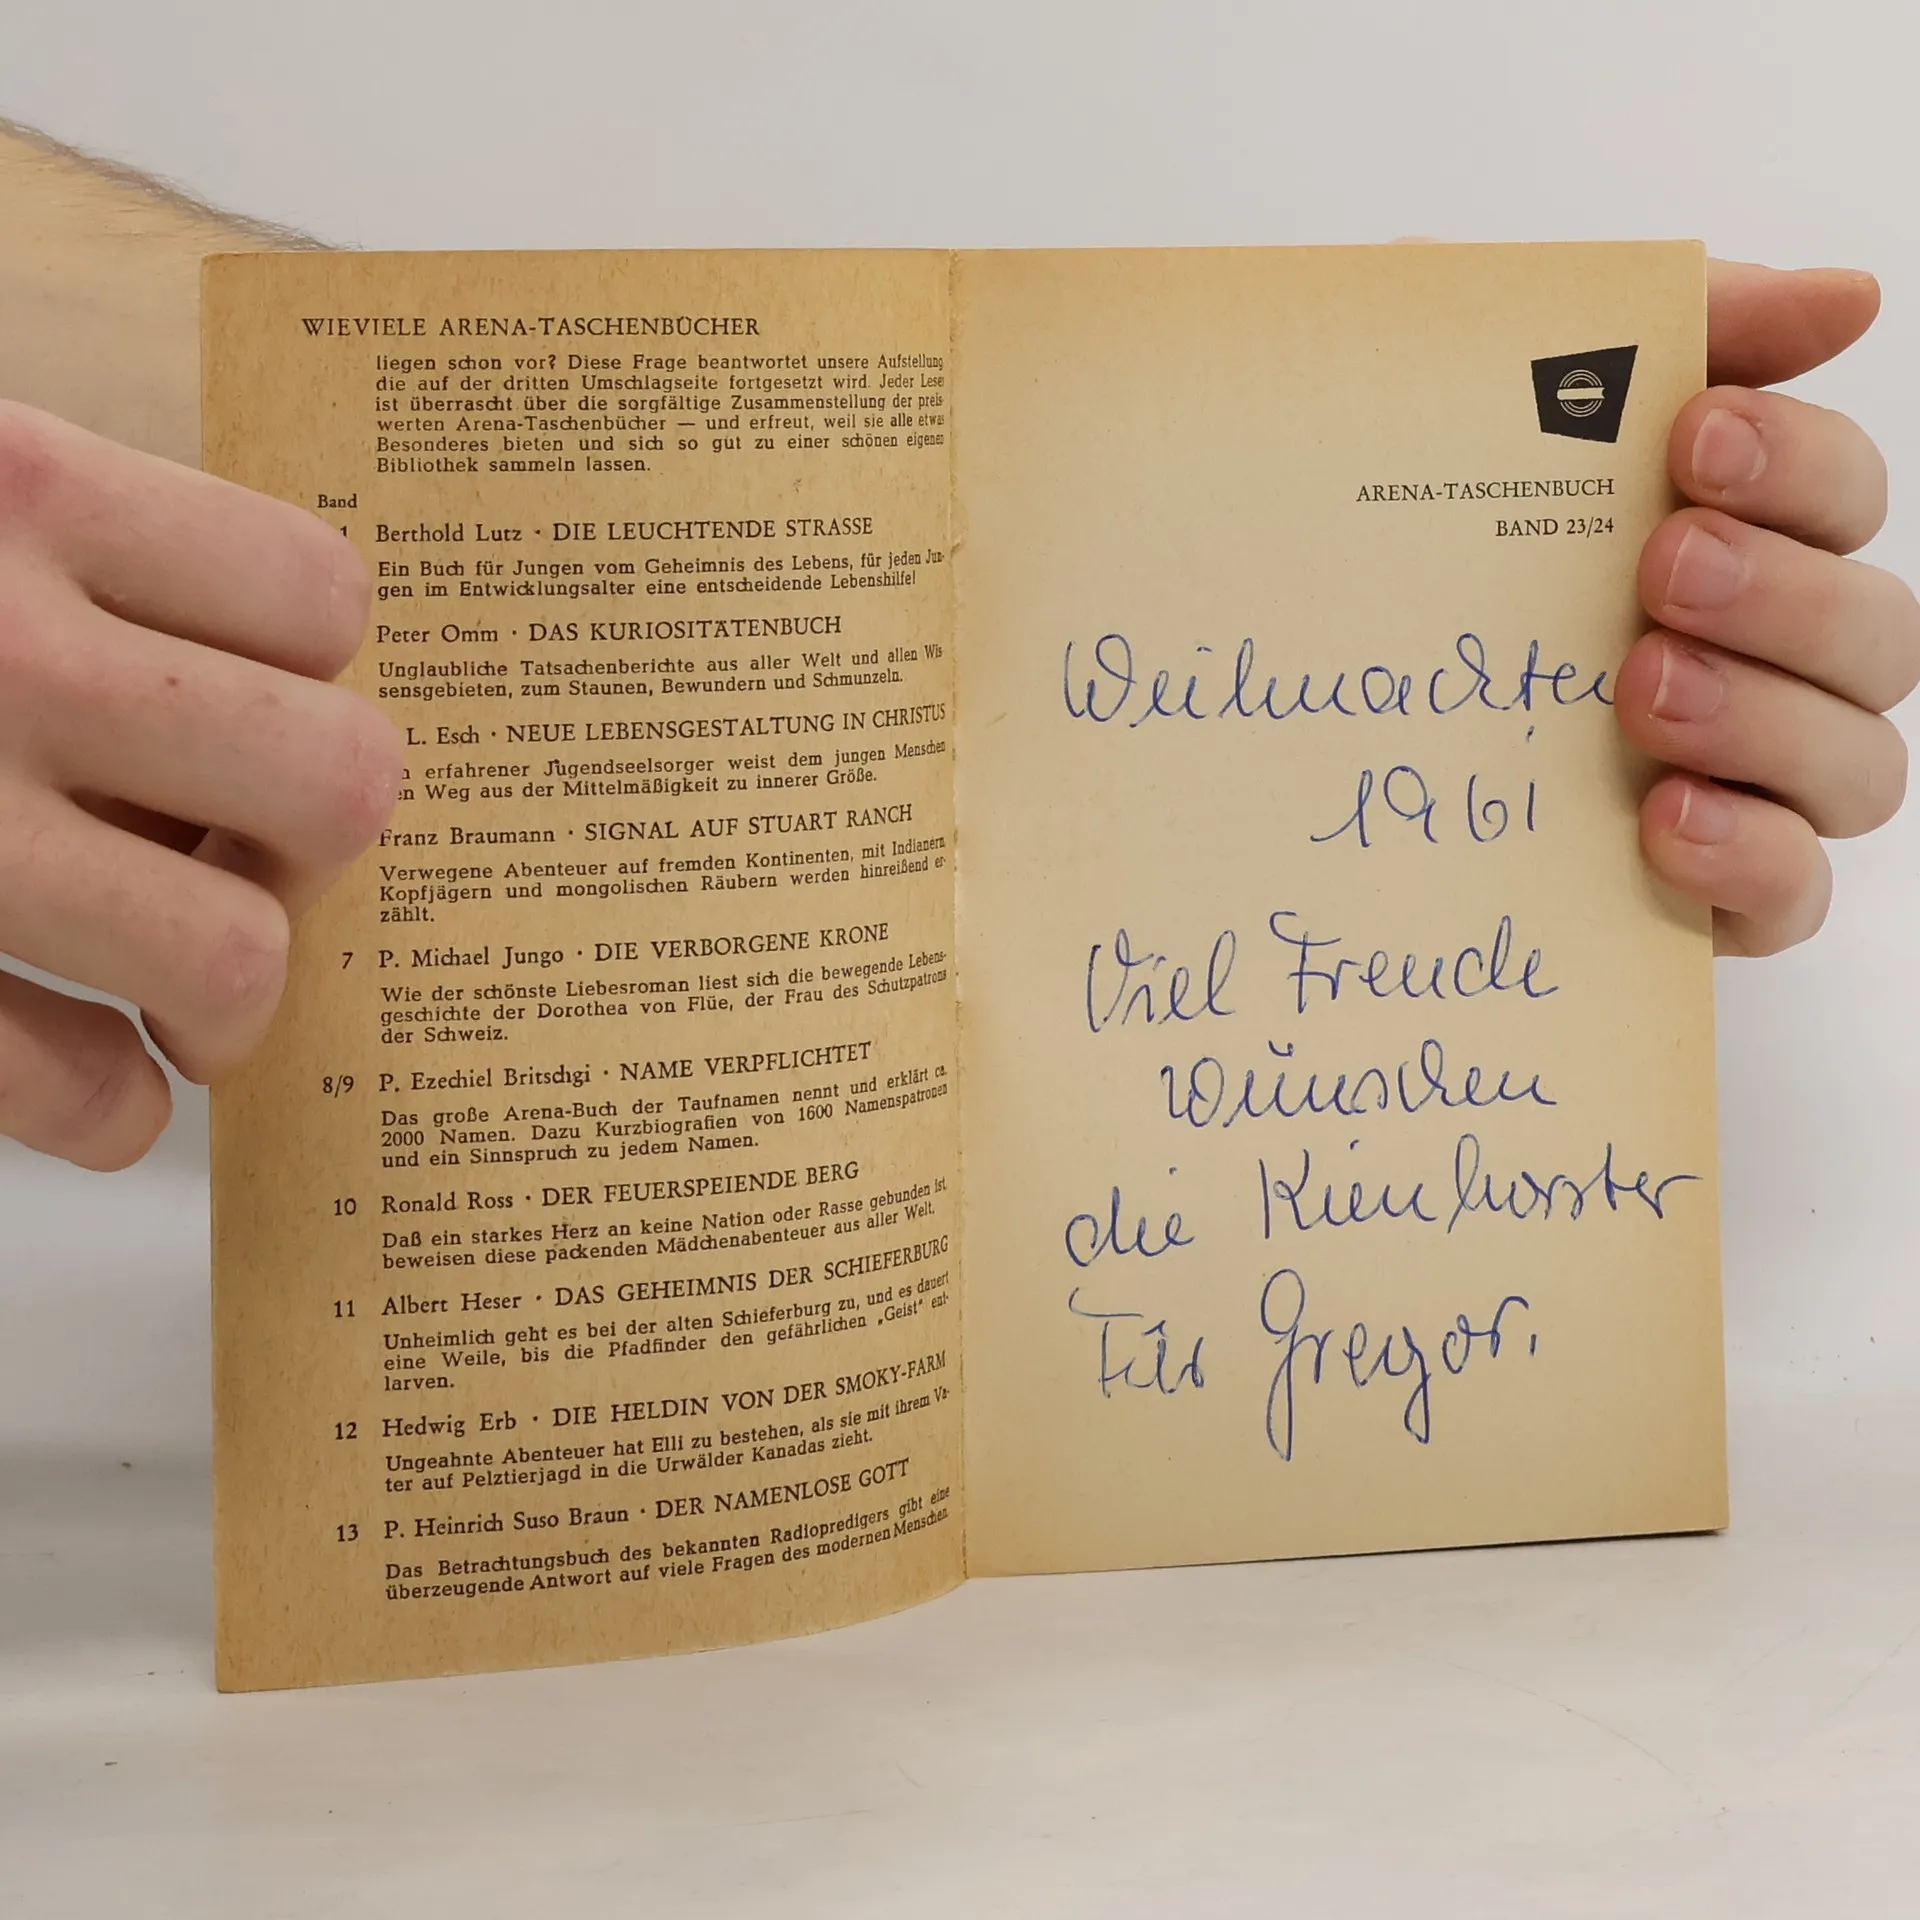 WIEVIELE ARENA-TASCHENBÜCHER
liegen schon vor? Diese Frage beantwortet unsere Aufstellung
die auf der dritten Umschlagseite fortgesetzt wird. Jeder Leser
ist überrascht über die sorgfältige Zusammenstellung der preis-
werten Arena-Taschenbücher — und erfreut, weil sie alle etwas
Besonderes bieten und sich so gut zu einer schönen eigenen
Bibliothek sammeln lassen.
Band
1 Berthold Lutz · DIE LEUCHTENDE STRASSE
Ein Buch für Jungen vom Geheimnis des Lebens, für jeden Jun-
gen im Entwicklungsalter eine entscheidende Lebenshilfe!
Peter Omm · DAS KURIOSITÄTENBUCH
Unglaubliche Tatsachenberichte aus aller Welt und allen Wis-
sensgebieten, zum Staunen, Bewundern und Schmunzeln.
L. Esch · NEUE LEBENSGESTALTUNG IN CHRISTUS
erfahrener Jugendseelsorger weist dem jungen Menschen
Weg aus der Mittelmäßigkeit zu innerer Größe.
Franz Braumann · SIGNAL AUF STUART RANCH
Verwegene Abenteuer auf fremden Kontinenten, mit Indianern
Kopfjägern und mongolischen Räubern werden hinreißend er-
zählt.
7 P. Michael Jungo · DIE VERBORGENE KRONE
Wie der schönste Liebesroman liest sich die bewegende Lebens-
geschichte der Dorothea von Flüe, der Frau des Schutzpatrons
der Schweiz.
8/9 P. Ezechiel Britschgi · NAME VERPFLICHTET
Das große Arena-Buch der Taufnamen nennt und erklärt ca.
2000 Namen. Dazu Kurzbiografien von 1600 Namenspatronen
und ein Sinnspruch zu jedem Namen.
10 Ronald Ross · DER FEUERSPEIENDE BERG
Daß ein starkes Herz an keine Nation oder Rasse gebunden ist,
beweisen diese packenden Mädchenabenteuer aus aller Welt.
11 Albert Heser · DAS GEHEIMNIS DER SCHIEFERBURG
Unheimlich geht es bei der alten Schieferburg zu, und es dauert
eine Weile, bis die Pfadfinder den gefährlichen „Geist" ent-
larven.
12 Hedwig Erb · DIE HELDIN VON DER SMOKY-FARM
Ungeahnte Abenteuer hat Elli zu bestehen, als sie mit ihrem Va-
ter auf Pelztierjagd in die Urwälder Kanadas zieht.
13 P. Heinrich Suso Braun · DER NAMENLOSE GOTT
Das Betrachtungsbuch des bekannten Radiopredigers gibt eine
überzeugende Antwort auf viele Fragen des modernen Menschen
ARENA-TASCHENBUCH
BAND 23/24
Weihnachten
1961
Viel Freude
wünschen
die Kienhorster
Für Gregor.